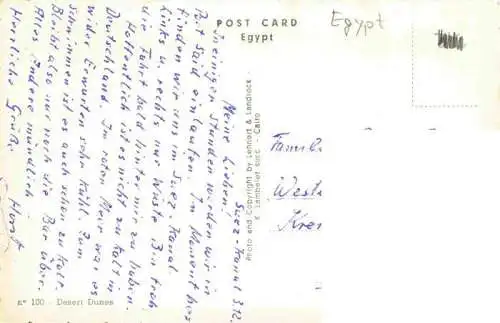 POST CARD
Egypt
Egypt
Suez-Kanal 3.12.
Meine Lieben!
In einigen Stunden werden wir in
Port Said einlaufen. Im Moment
finden wir uns im Suez-Kanal.
Links u. rechts nur Wüste. Bin froh
die Fahrt bald hinter mir zu haben.
Hoffentlich ist es nicht zu kalt in
Deutschland. Im roten Meer war es
wider Erwarten sehr kühl. Zum
schwimmen ist es auch schon zu kalt.
Bleibt also nur noch die Bar über.
Alles Andere mündlich.
Herzliche Grüße
Horst
Photo and Copyright by Lehnert & Landrock
K. Lambelet succ. - Cairo
Famil
Westa
Kre
N° 100 - Desert Dunes